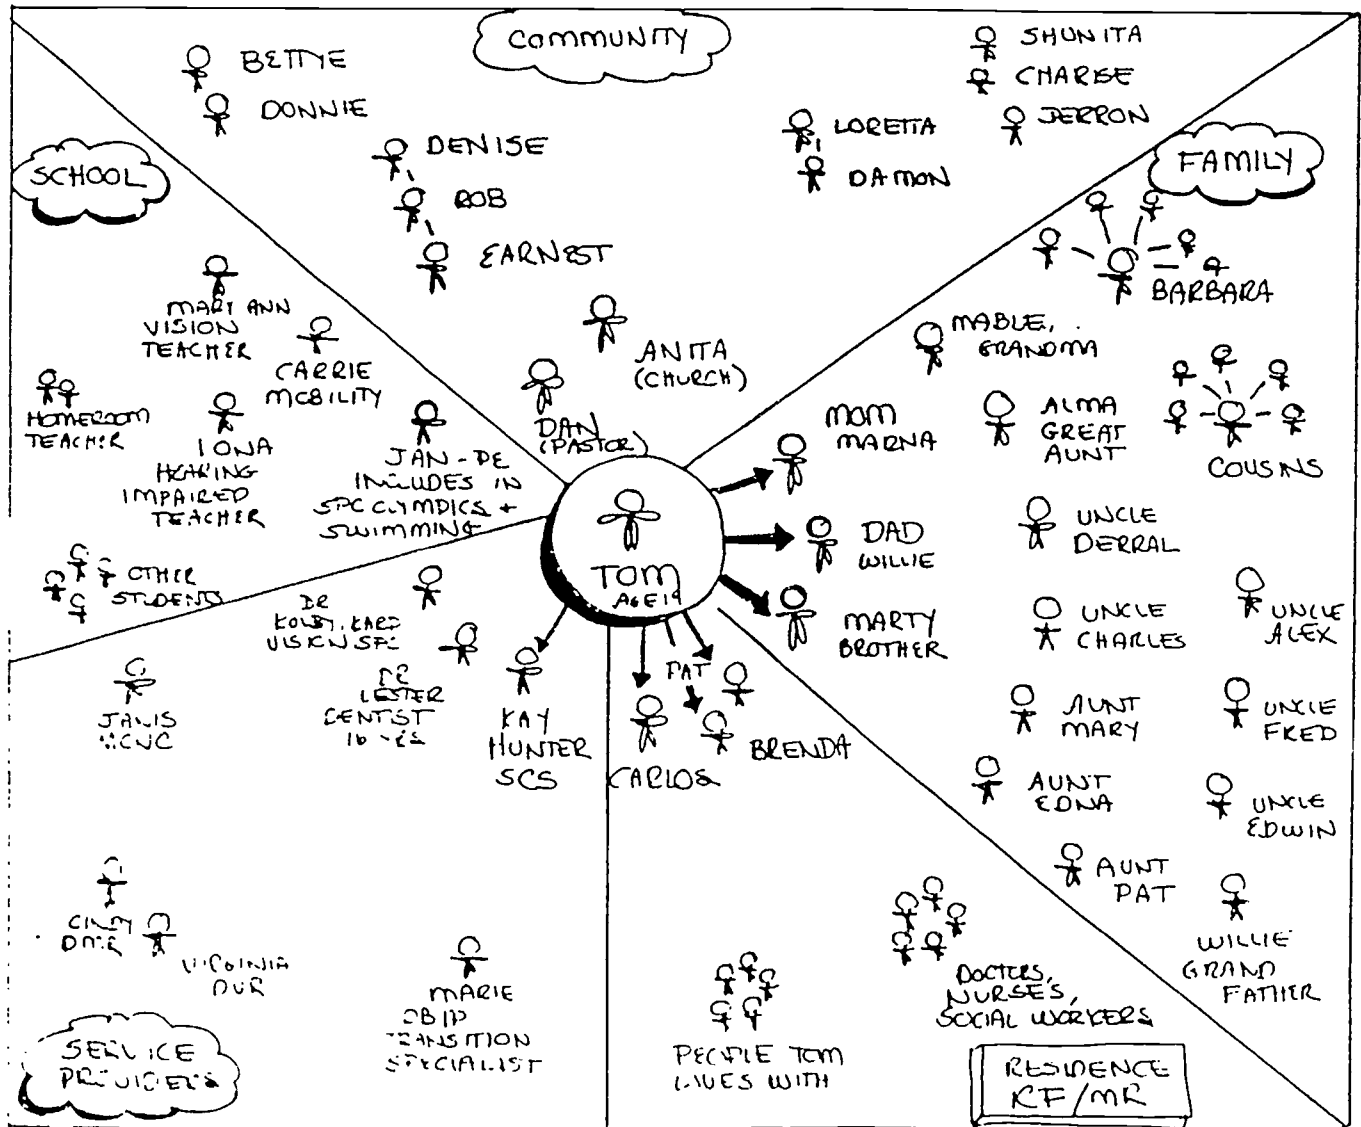 COMMUNITY
BETTYE
DONNIE
DENISE
ROB
EARNEST
ANITA
(CHURCH)
DAN
(PASTOR)
LORETTA
DAMON
SHUNITA
CHARISE
JERRON
SCHOOL
MARY ANN
VISION
TEACHER
CARRIE
MOBILITY
HOMEROOM
TEACHER
IONA
HEARING
IMPAIRED
TEACHER
JAN - PE
INCLUDES IN
SPC OLYMPICS +
SWIMMING
OTHER
STUDENTS
FAMILY
BARBARA
MABLE,
GRANDMA
MOM
MARNA
ALMA
GREAT
AUNT
COUSINS
DAD
WILLIE
UNCLE
DERRAL
MARTY
BROTHER
UNCLE
CHARLES
UNCLE
ALEX
AUNT
MARY
UNCLE
FRED
AUNT
EDNA
UNCLE
EDWIN
AUNT
PAT
WILLIE
GRAND
FATHER
TOM
AGE 19
DR
VISION SPC
DR
LESTER
DENTIST
KAY
HUNTER
SCS
JANIS
CINDY
VIRGINIA
MARIE
TRANSITION
SPECIALIST
SERVICE
PROVIDERS
PAT
CARLOS
BRENDA
PEOPLE TOM
LIVES WITH
DOCTERS,
NURSES,
SOCIAL WORKERS
RESIDENCE
ICF/MR